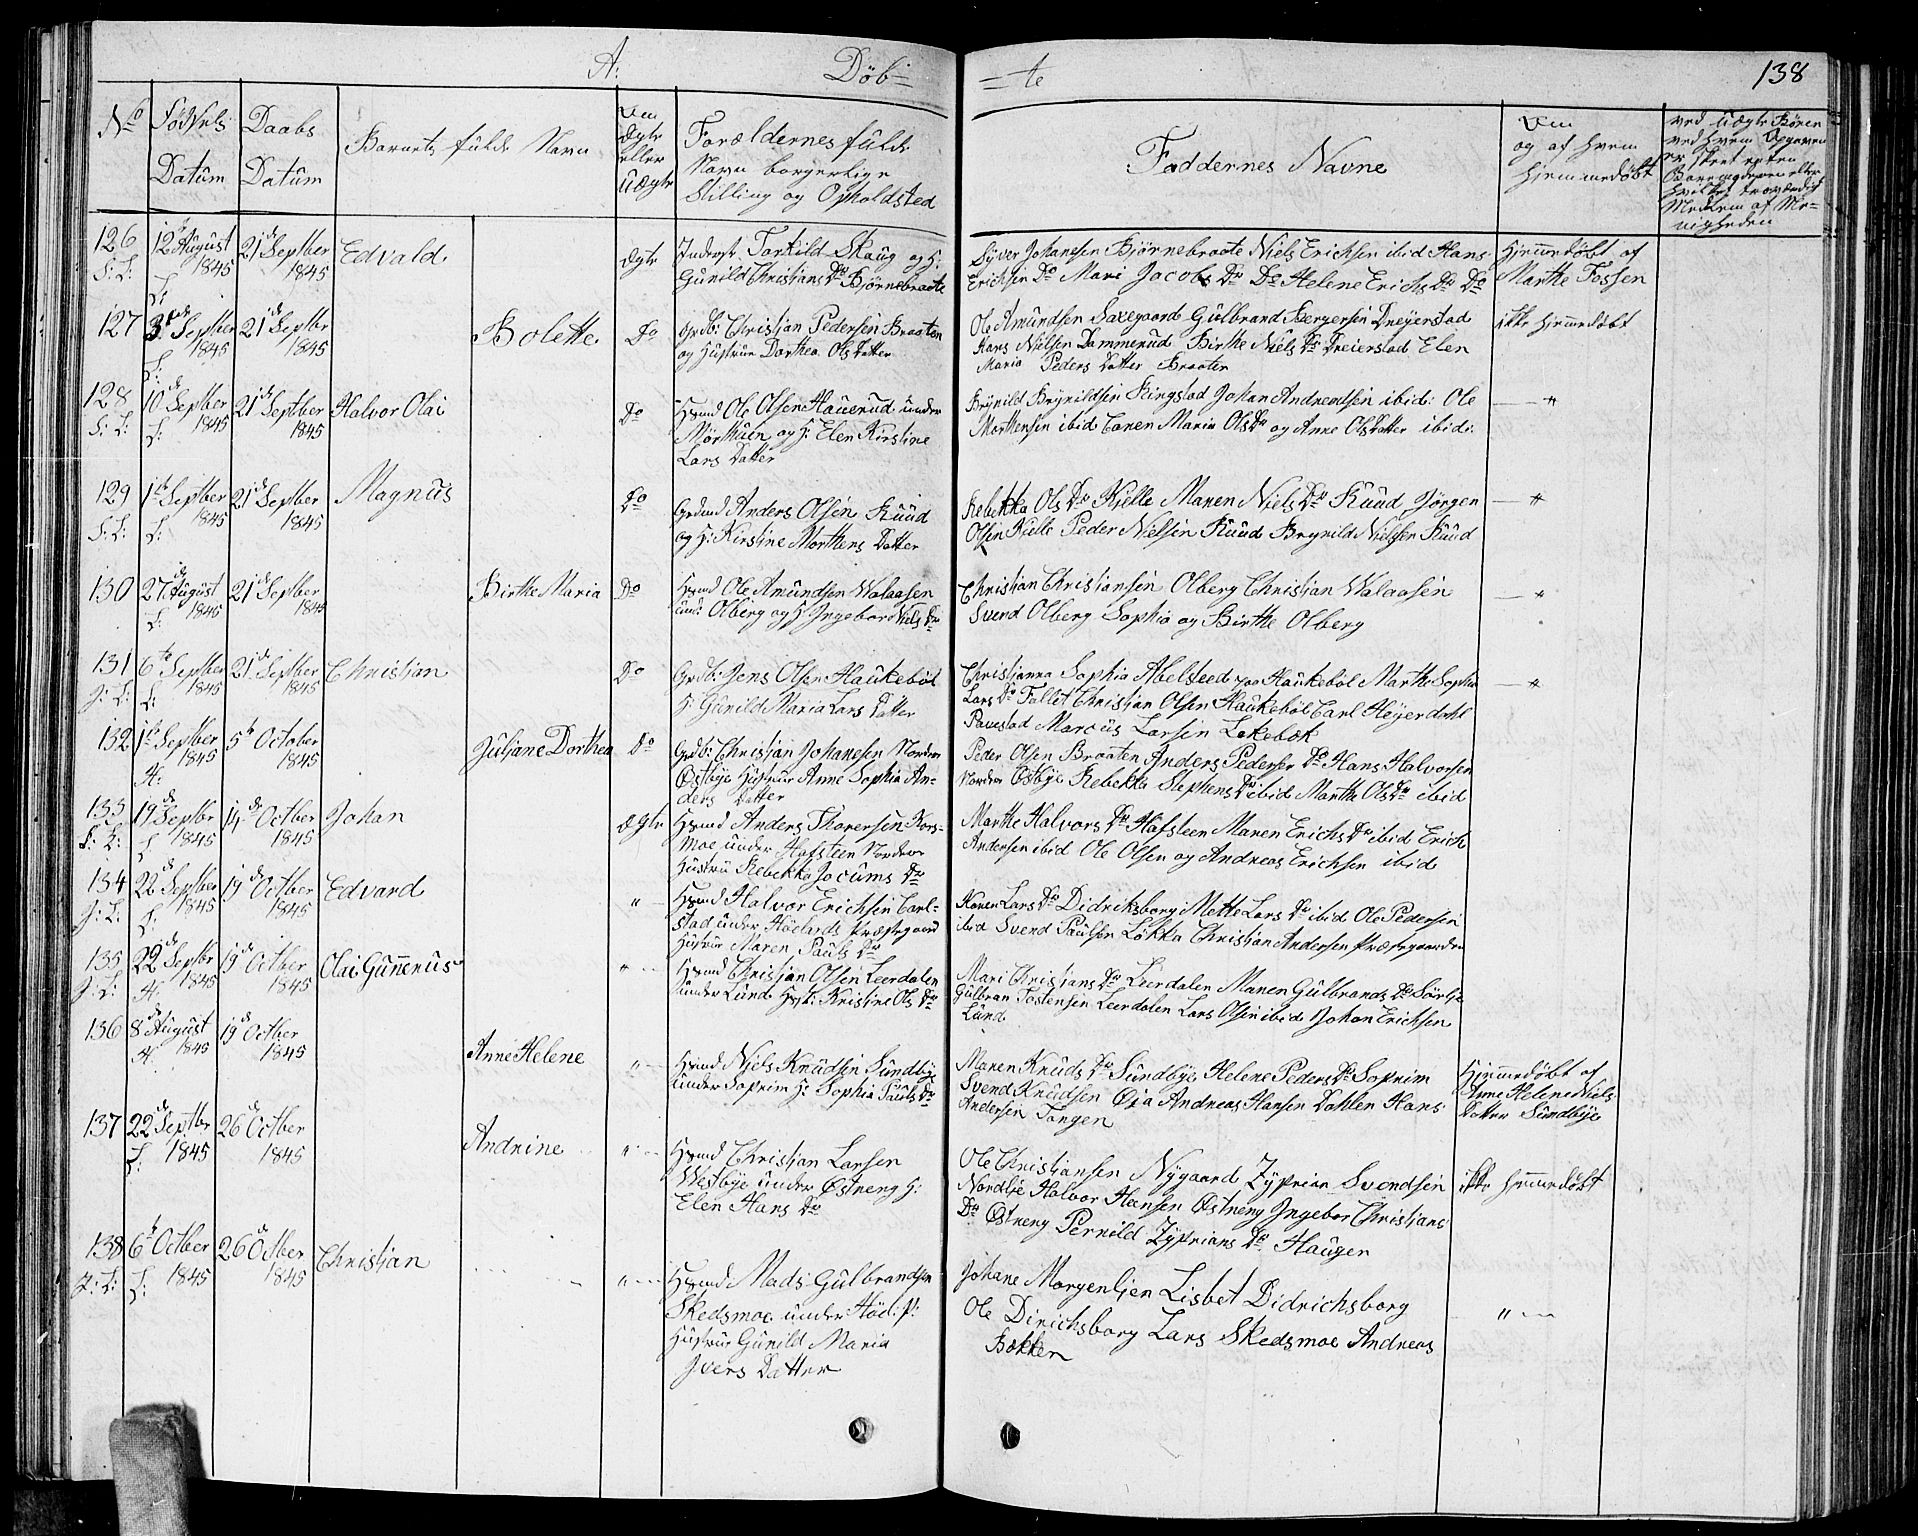 A: Døb= =te 138
No Fødsels Datum Daabs Datum Barnets fulde Navn Om Ægte eller Uægte Forældernes fulde Navn borgerlige Stilling og Opholdsted
Faddernes Navne Om og af hvem hjemmedøbt
126 12 August 1845 21de Septber 1845 Edvald Ægte Inderst Torkild Skaug og H:
Gunild Christians Dr Bjørnebraate
Syver Johansen Bjørnebraate Niels Erichsen ibid Hans
Erichsen Do Mari Jacobs Dr Do Helene Erichs Dr Do
Hjemmedøbt af
Marthe Fossen
127 3de Septber 1845 21de Septbr 1845 Bolette Do Grdb: Christian Pedersen Braaten
og Hustrue Dorthea Ols Datter
Ole Amundsen Saxegaard Gulbrand Bergersen Dreyerstad
Hans Nielsen Dammerud Birthe Niels Dr Dreierstad Elen
Maria Peders Datter Braaten
ikke hjemmedøbt
128 10de Septber 1845 21de Septber 1845 Halvor Olai Do Hsmd Ole Olsen Hauerud under
Mørthuen og H: Elen Kirstine
Lars Datter
Brynild Brynildsen Ringstad Johan Andreasen ibid: Ole
Morthensen ibid Caren Maria Ols Dr og Anne Ols Datter ibid:
129 1te Septber 1845 21de Septber 1845 Magnus Do Grdmd Anders Olsen Ruud
og H: Kirstine Morthens Datter
Rebekka Ols Dr Kjelle Maren Niels Dr Ruud Jørgen
Olsen Kjelle Peder Nielsen Ruud Brynild Nielsen Ruud
130 27de August 1845 21de Septber 1845 Birthe Maria Do Hsmd Ole Amundsen Walaasen
und: Olberg og H: Ingebor Niels Dr
Christian Christiansen Olberg Christian Walaasen
Svend Olberg Sophia og Birthe Olberg
131 6te Septber 1845 21de Septber 1845 Christian Do Grdb: Jens Olsen Haukebøl
H: Gunild Maria Lars Datter
Christianna Sophia Abelsteed paa Haukebøl Marthe Sophia
Lars Dr Follet Christian Olsen Haukebøl Carl Heyerdahl
Pavestad Marcus Larsen Lakebæk
132 1te Septber 1845 5te October 1845 Juliane Dorthea Do Grdb: Christian Johansen Nordre
Østbye Hustrue Anne Sophia An-
ders Datter
Peder Olsen Braaten Anders Pedersen Do Hans Halvorsen
Nordre Østbye Rebekka Stephens Dr ibid Marthe Ols Dr ibid
133 19de Septbr 1845 14de Octber 1845 Johan Ægte Hsmd Anders Thoresen Kors-
moe under Hafsteen Nordre
Hustru Rebekka Jocums Dr
Marthe Halvors Dr Hafsteen Maren Erichs Dr ibid Erich
Andersen ibid Ole Olsen og Andreas Erichsen ibid
134 22de Septber 1845 19de Octber 1845 Edvard " Hsmd Halvor Erichsen Carl-
stad under Hødlands Præstegaard
Hustrue Maren Pauls Dr
Karen Lars Dr Didriksborg Mette Lars Dr ibid Ole Pedersen
ibid Svend Paulsen Løkka Christian Andersen Præstegaarden
135 22de Septbr 1845 19de Octber 1845 Olai Gunnerus " Hsmd Christian Olsen Leerdalen
under Lund Hust: Kristine Ols Dr
Mari Christians Dr Leerdalen Maren Gulbrands Dr Sørlie
Gulbran Tostensen Leerdalen Lars Olsen ibid Johan Erichsen
Lund
136 8de August 1845 19de October 1845 Anne Helene " Hsmd Niels Knudsen Sundbye
under Soprim H: Sophia Pauls Dr
Maren Knuds Dr Sundbye Helene Peders Dr Soprim
Svend Knudsen Øia Andreas Hansen Dahlen Hans
Andersen Tangen
Hjemmedøbt af
Anne Helene Niels
Datter Sundbye
137 22de Septbr 1845 26de Octber 1845 Andrine " Hsmd Christian Larsen
Westbye under Østreng H:
Elen Hans Dr
Ole Christiansen Nygaard Zyprian Svendsen
Nordlie Halvor Hansen Østreng Ingebor Christians
Dr Østreng Pernild Zyprians Dr Haugen
ikke hjemmedøbt
138 6te Octber 1845 26de Octber 1845 Christian " Hsmd Mads Gulbrandsen
Skedsmoe under Hød: P:
Hustrue Gunild Maria
Ivers Datter
Johane Morgenlien Lisbet Didrichsborg
Ole Dirichsborg Lars Skedsmoe Andreas
Bækken